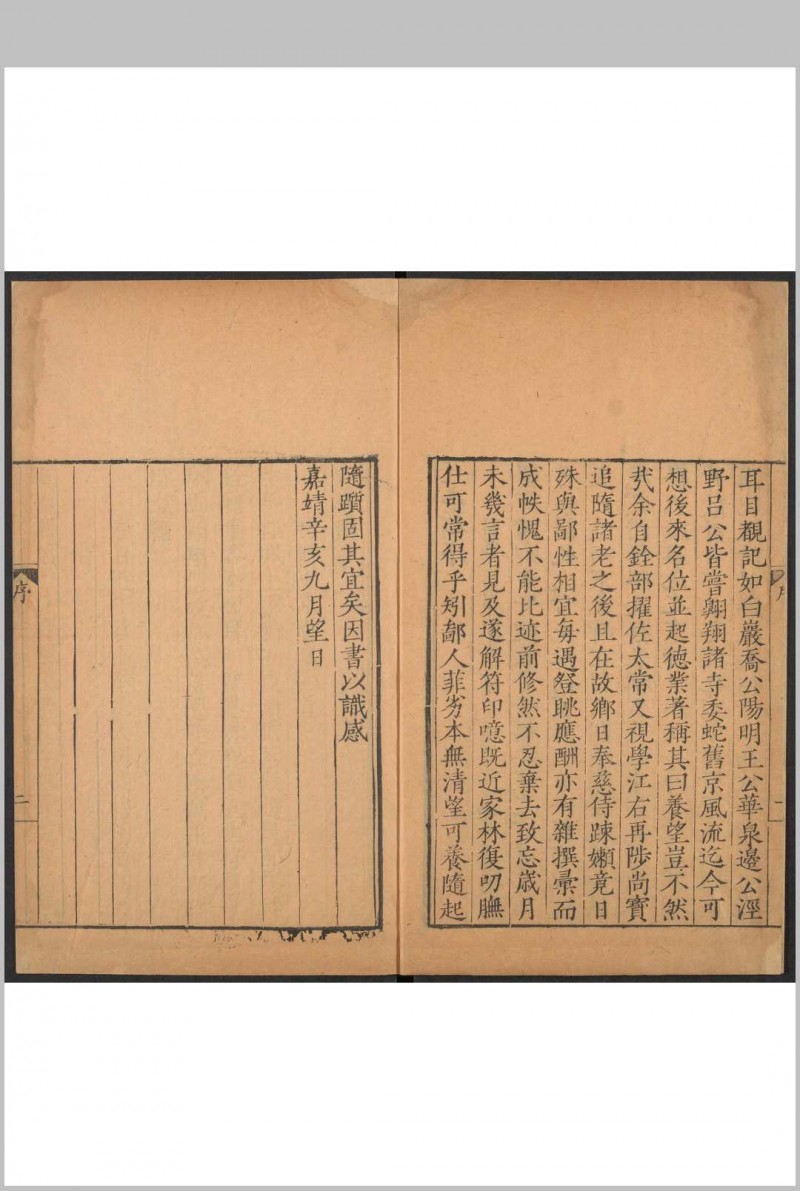 耳目覩記如白巖喬公陽明王公華泉邊公涇
野呂公皆嘗翺翔諸寺委蛇舊京風流迄今可
想後來名位並起德業著稱其曰養望豈不然
㦲余自銓部擢佐太常又視學江右再陟尚寶
追隨諸老之後且在故鄉日奉慈侍踈嬾竟日
殊與鄙性相宜每遇登眺應酬亦有雜撰彙而
成帙愧不能比迹前修然不忍棄去致忘歲月
未幾言者見及遂解符印噫既近家林復叨膴
仕可常得乎矧鄙人菲劣本無清望可養隨起
隨躓固其宜矣因書以識感
嘉靖辛亥九月望日
序
二